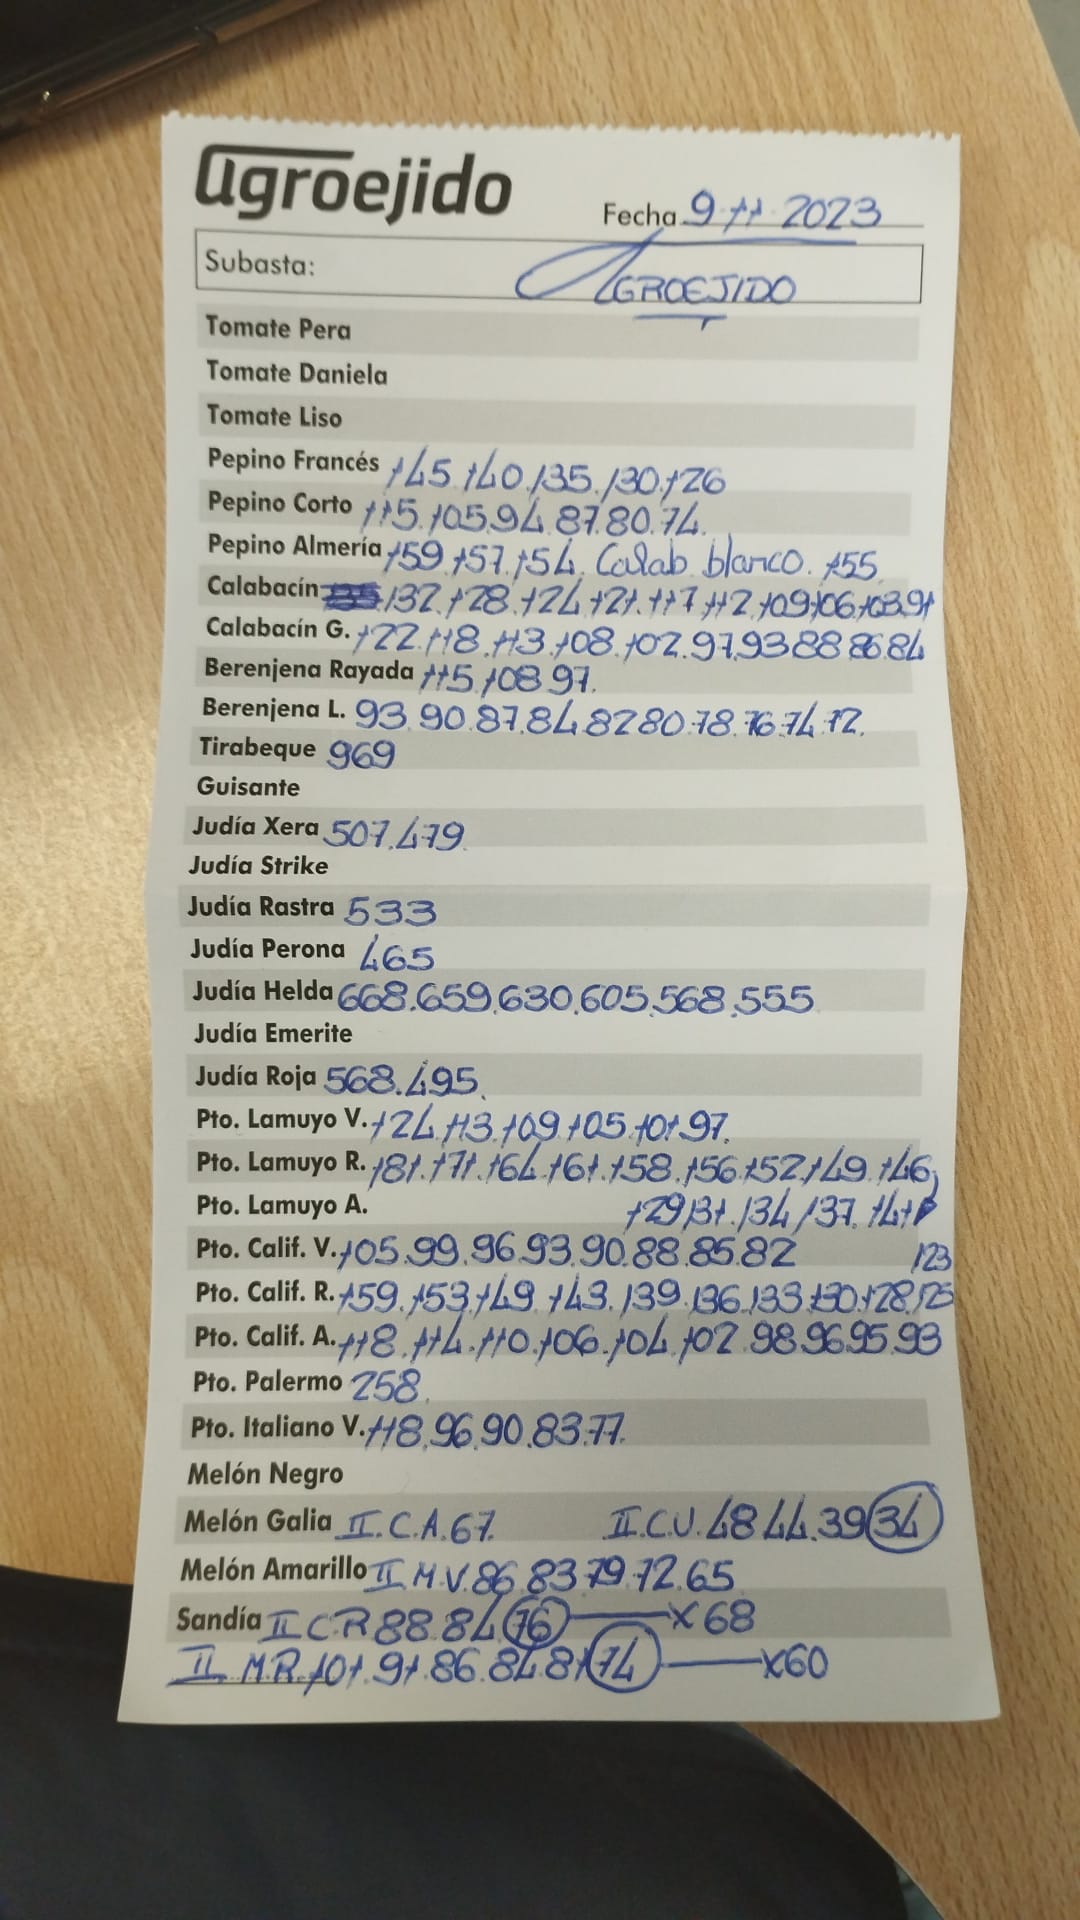 agroejido
Fecha 9-11-2023
Subasta: AGROEJIDO
Tomate Pera
Tomate Daniela
Tomate Liso
Pepino Francés 145.140.135.130.126
Pepino Corto 115.105.94.87.80.74.
Pepino Almería 159.157.154. Calab blanco. 155
Calabacín 132.128.124.121.117.112.109.106.103.91
Calabacín G. 122.118.113.108.102.97.93.88.86.84
Berenjena Rayada 115.108.97.
Berenjena L. 93.90.87.84.82.80.78.76.74.72.
Tirabeque 969
Guisante
Judía Xera 507.479.
Judía Strike
Judía Rastra 533
Judía Perona 465
Judía Helda 668.659.630.605.568.555
Judía Emerite
Judía Roja 568.495.
Pto. Lamuyo V. 124.113.109.105.101.97.
Pto. Lamuyo R. 181.171.164.161.158.156.152.149.146
Pto. Lamuyo A. 129.131.134.137.141
Pto. Calif. V. 105.99.96.93.90.88.85.82 123
Pto. Calif. R. 159.153.149.143.139.136.133.130.128.125
Pto. Calif. A. 118.114.110.106.104.102.98.96.95.93
Pto. Palermo 258.
Pto. Italiano V. 118.96.90.83.77.
Melón Negro
Melón Galia II.C.A.67. II.C.V.48.44.39.34
Melón Amarillo II.M.V.86.83.79.72.65
Sandía II C.R 88.84.76 x68
II M.R. 101.91.86.84.81.74 x60